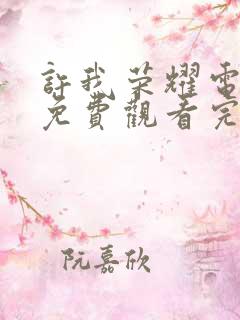 許我榮耀電
免費觀看完
阮嘉欣